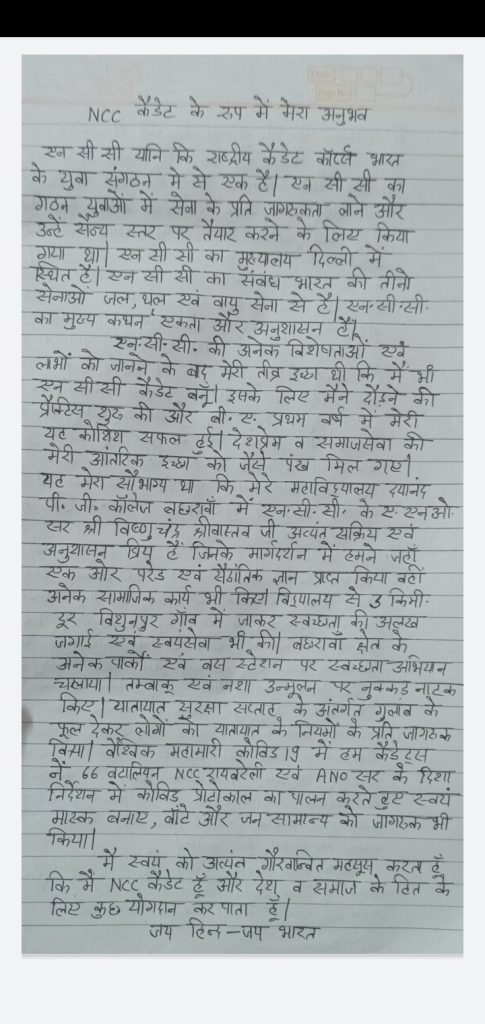 NCC कैडेट के रूप में मेरा अनुभव
एन सी सी यानि कि राष्ट्रीय कैडेट कॉर्प्स भारत
के युवा संगठन मे से एक है। एन सी सी का
गठन युवाओं में सेना के प्रति जागरुकता लाने और
उन्हें सैन्य स्तर पर तैयार करने के लिए किया
गया था। एन सी सी का मुख्यालय दिल्ली में
स्थित है। एन सी सी का संबंध भारत की तीनो
सेनाओं जल, थल एवं वायु सेना से है। एन.सी.सी.
का मुख्य कथन 'एकता और अनुशासन' है।
एन.सी.सी. की अनेक विशेषताओं एवं
लाभों को जानने के बाद मेरी तीव्र इच्छा थी कि मैं भी
एन सी सी कैडेट बनूँ। इसके लिए मैने दौड़ने की
प्रैक्टिस शुरु की और बी.ए. प्रथम वर्ष में मेरी
यह कोशिश सफल हुई। देशप्रेम व समाजसेवा की
मेरी आंतरिक इच्छा को जैसे पंख मिल गए।
यह मेरा सौभाग्य था कि मेरे महाविद्यालय दयानंद
पी. जी. कॉलेज बछरावाँ में एन.सी.सी. के ए. एनओ.
सर श्री विष्णु चंद्र श्रीवास्तव जी अत्यंत सक्रिय एवं
अनुशासन प्रिय हैं जिनके मार्गदर्शन में हमने जहाँ
एक ओर परेड एवं सैद्धांतिक ज्ञान प्राप्त किया वहीं
अनेक सामाजिक कार्य भी किए। विद्यालय से 3 किमी.
दूर विशुनपुर गाँव में जाकर स्वच्छता की अलख
जगाई एवं स्वयंसेवा भी की। बछरावाँ क्षेत्र के
अनेक पार्को एवं बस स्टेशन पर स्वच्छता अभियान
चलाया। तम्बाकू एवं नशा उन्मूलन पर नुक्कड़ नाटक
किए। यातायात सुरक्षा सप्ताह के अंतर्गत गुलाब के
फूल देकर लोगों को यातायात के नियमों के प्रति जागरुक
किया। वैश्विक महामारी कोविड 19 में हम कैडेट्स
नें 66 बटालियन NCC रायबरेली एवं ANO सर के दिशा
निर्देशन में कोविड प्रोटोकाल का पालन करते हुए स्वयं
मास्क बनाए, बाँटे और जन सामान्य को जागरुक भी
किया।
मै स्वयं को अत्यंत गौरवान्वित महसूस करता हूँ
कि मैं NCC कैडेट हूँ और देश व समाज के हित के
लिए कुछ योगदान कर पाता हूँ।
जय हिन्द – जय भारत